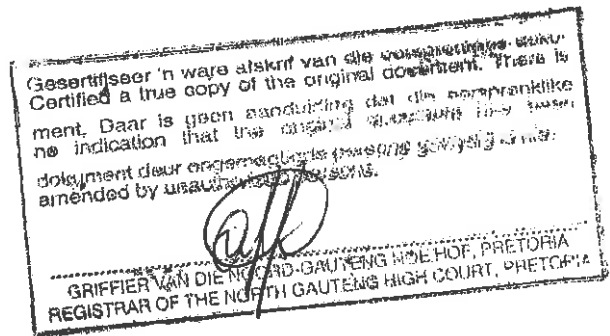 Gesertifiseer 'n ware afskrif van die oorspronklike doku-
Certified a true copy of the original document. There is
ment. Daar is geen aanduiding dat die oorspronklike
no indication that the original has been
dokument deur ongemagtigde persone gewysig is nie.
amended by unauthorised persons.
GRIFFIER VAN DIE NOORD-GAUTENG HOË HOF, PRETORIA
REGISTRAR OF THE NORTH GAUTENG HIGH COURT, PRETORIA